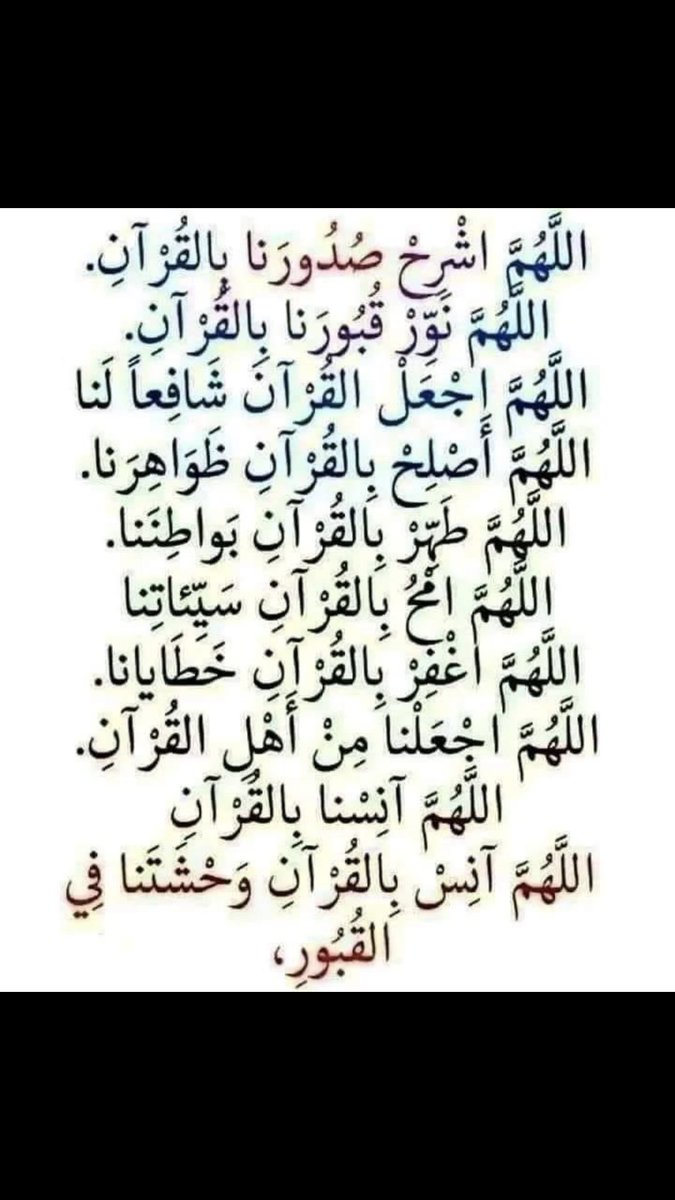 اللَّهُمَّ اشْرِحْ صُدُورَنا بِالقُرْآنِ.
اللَّهُمَّ نَوِّرْ قُبُورَنا بِالقُرْآنِ.
اللَّهُمَّ اجْعَلْ القُرْآنَ شَافِعاً لَنا
اللَّهُمَّ أَصْلِحْ بِالقُرْآنِ ظَوَاهِرَنا.
اللَّهُمَّ طَهِّرْ بِالقُرْآنِ بَواطِنَنا.
اللَّهُمَّ امْحُ بِالقُرْآنِ سَيِّئاتِنا
اللَّهُمَّ اغْفِرْ بِالقُرْآنِ خَطَايانا.
اللَّهُمَّ اجْعَلْنا مِنْ أَهْلِ القُرْآنِ.
اللَّهُمَّ آنِسْنا بِالقُرْآنِ
اللَّهُمَّ آنِسْ بِالقُرْآنِ وَحْشَتَنا فِي
القُبُورِ،